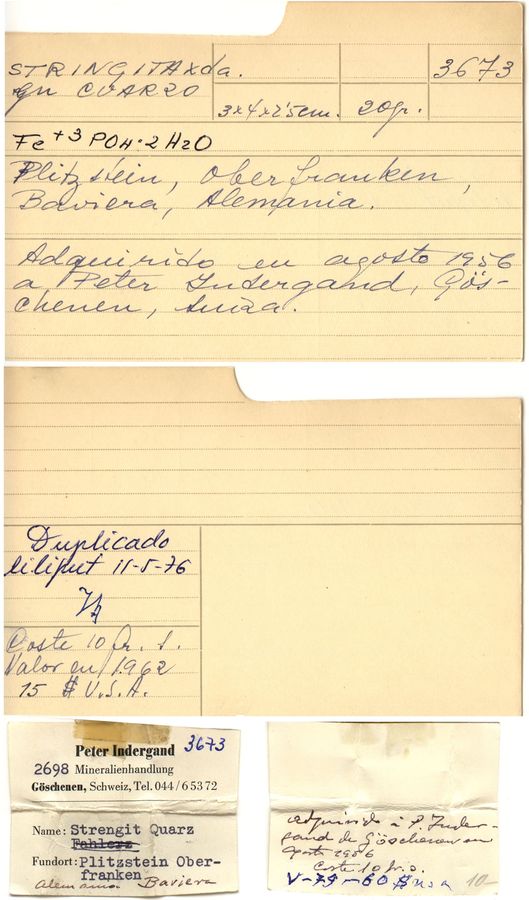 STRINGITA xda.
en CUARZO
3673
3x4x2'5cm.
20gr.
Fe+3 PO4·2H2O
Plitzstein, Oberfranken,
Baviera, Alemania.
Adquirido en agosto 1956
a Peter Indergand, Gös-
chenen, Suiza.
Duplicado
liliput 11-5-76
Coste 10 fr. s.
Valor en 1962
15 $ U.S.A.
Peter Indergand 3673
2698 Mineralienhandlung
Göschenen, Schweiz, Tel. 044/6 53 72
Name: Strengit Quarz
Fahlerz
Fundort: Plitzstein Ober-
franken
Alemania Baviera
adquirido à P. Inder-
gand de Göschenen en
agosto 1956
Coste 10 fr. s.
V-79-60 $ USA
10-